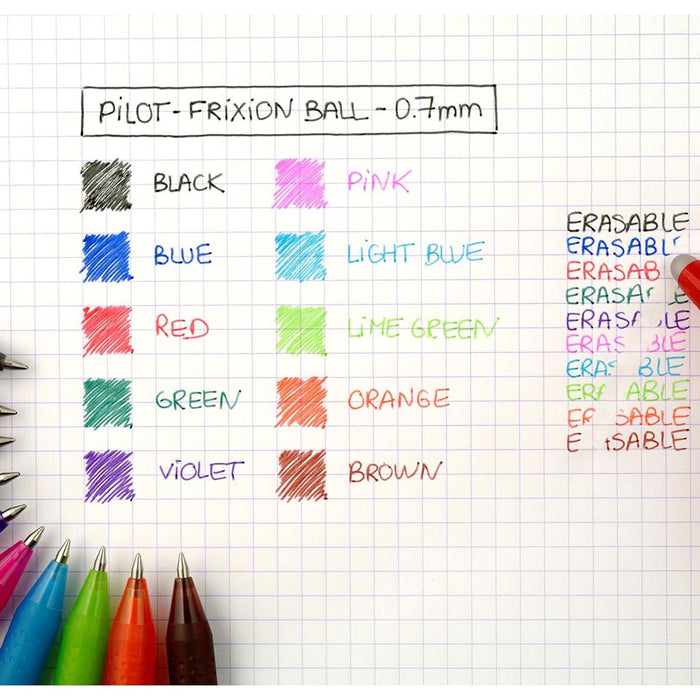 PiLOT-FRiXiON BALL - 0.7mm
BLACK
PiNK
BLUE
LiGHT BLUE
RED
LiME GREEN
GREEN
ORANGE
ViOLET
BROWN
ERASABLE
ERASABL
ERASAB
ERASA E
ERAS LE
ERAS BLE
ERA BLE
ER ABLE
ER SABLE
E SABLE